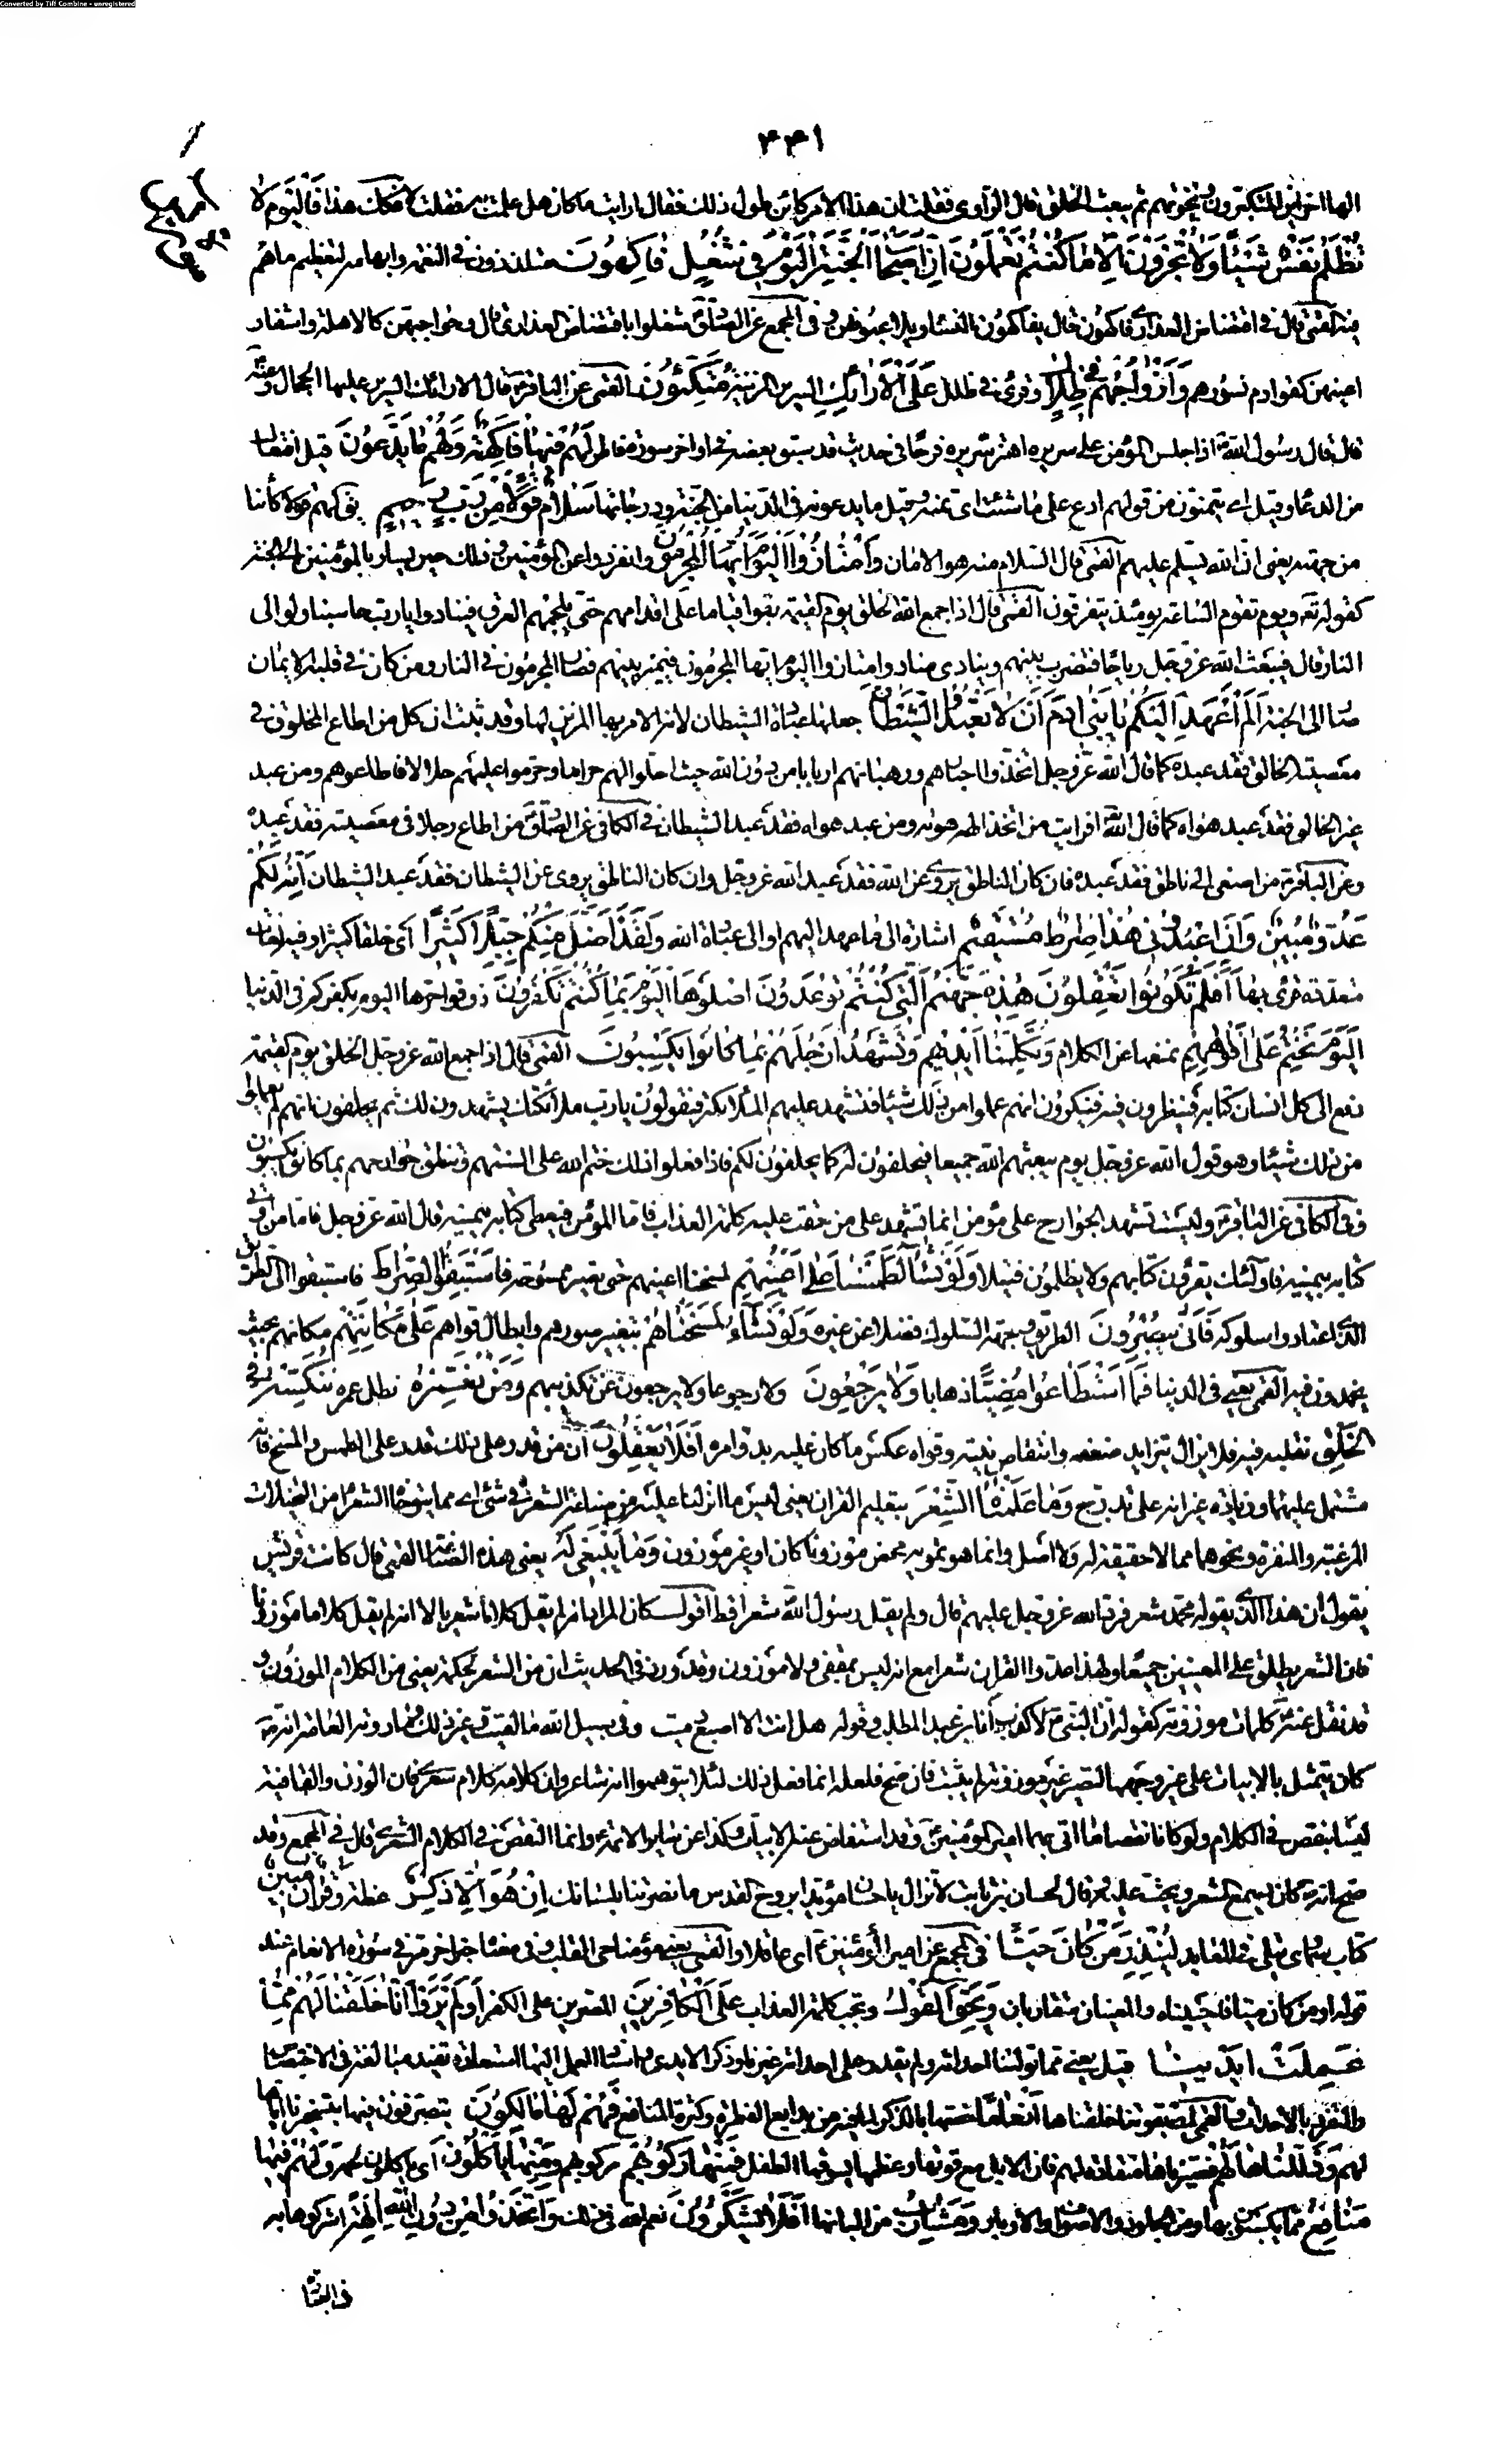 Converted by Tiff Combine - unregistered
٤٤١
الها اخر اين المتكبرون ونخوتهم ثم يبعث الخلق قال الراوي فقلت ان هذا الامر كائن طول ذلك فقال ارايت ما كان هل علمت به فقلت لا فكك هذا فَالْيَوْمَ لَا
تُظْلَمُ نَفْسٌ شَيْئًا وَلَا تُجْزَوْنَ اِلَّا مَا كُنْتُمْ تَعْمَلُونَ اِنَّ اَصْحَابَ الْجَنَّةِ الْيَوْمَ فِي شُغُلٍ فَاكِهُونَ متلذذون في النعمة وابهامه لتعظيم ما هم
فيه القمي قال في افتضاض العذارى فاكهون قال يفاكهون النساء ويلاعبونهن وفي المجمع عن الصادق شغلوا بافتضاض العذارى قال وحواجبهن كالاهلة واشفار
اعينهن كقوادم نسور هم وَاَزْوَاجُهُمْ فِي ظِلَالٍ وقرئ في ظلل عَلَى الْاَرَائِكِ السرير المزينة مُتَّكِئُونَ القمي عن الباقر قال الارائك السرير عليها الحجال وعنه
قال قال رسول الله اذا جلس المؤمن على سريره اهتز سريره فرحا في حديث قد سبق بعضه في اواخر سورة فاطر لَهُمْ فِيهَا فَاكِهَةٌ وَلَهُمْ مَا يَدَّعُونَ قيل افتعال
من الدعاء وقيل اي يتمنون من قولهم ادع على ما شئت اي تمنه وقيل ما يدعونه في الدنيا من الجنة ودرجاتها سَلَامٌ قَوْلًا مِنْ رَبٍّ رَحِيمٍ يق لهم قولا كائنا
من جهته يعني ان الله يسلم عليهم القمي قال السلام منه هو الامان وَامْتَازُوا الْيَوْمَ اَيُّهَا الْمُجْرِمُونَ وانفردوا عن المؤمنين وذلك حين يسار بالمؤمنين الى الجنة
كقوله تع ويوم تقوم الساعة يومئذ يتفرقون القمي قال اذا جمع الله الخلق يوم القيمة بقوا قياما على اقدامهم حتى يلجمهم العرق فينادوا يا رب حاسبنا ولو الى
النار قال فيبعث الله عز وجل رياحا فتضرب بينهم وينادي مناد وامتازوا اليوم ايها المجرمون فيميز بينهم فصار المجرمون في النار ومن كان في قلبه الايمان
صار الى الجنة اَلَمْ اَعْهَدْ اِلَيْكُمْ يَا بَنِي اٰدَمَ اَنْ لَا تَعْبُدُوا الشَّيْطَانَ جعلها عبادة الشيطان لانه الامر بها المزين لها وقد ثبت ان كل من اطاع المخلوق في
معصية الخالق فقد عبده كما قال الله عز وجل اتخذوا احبارهم ورهبانهم اربابا من دون الله حيث احلوا لهم حراما وحرموا عليهم حلالا فاطاعوهم ومن عبد
غير الخالق فقد عبد هواه كما قال الله افرايت من اتخذ الهه هواه ومن عبد هواه فقد عبد الشيطان في الكافي عن الصادق من اطاع رجلا في معصيته فقد عبده
وعن الباقر من اصغى الى ناطق فقد عبده فان كان الناطق يروي عن الله فقد عبد الله عز وجل وان كان الناطق يروي عن الشيطان فقد عبد الشيطان اِنَّهُ لَكُمْ
عَدُوٌّ مُبِينٌ وَاَنِ اعْبُدُونِي هٰذَا صِرَاطٌ مُسْتَقِيمٌ اشارة الى ما عهد اليهم او الى عبادة الله وَلَقَدْ اَضَلَّ مِنْكُمْ جِبِلًّا كَثِيرًا اي خلقا كثيرا وفيه لغات
متعددة قرئ بها اَفَلَمْ تَكُونُوا تَعْقِلُونَ هٰذِهِ جَهَنَّمُ الَّتِي كُنْتُمْ تُوعَدُونَ اصْلَوْهَا الْيَوْمَ بِمَا كُنْتُمْ تَكْفُرُونَ ذوقوا حرها اليوم بكفركم في الدنيا
اَلْيَوْمَ نَخْتِمُ عَلَى اَفْوَاهِهِمْ نمنعها عن الكلام وَتُكَلِّمُنَا اَيْدِيهِمْ وَتَشْهَدُ اَرْجُلُهُمْ بِمَا كَانُوا يَكْسِبُونَ القمي قال اذا جمع الله عز وجل الخلق يوم القيمة
دفع الى كل انسان كتابه فينظرون فيه فينكرون انهم عملوا من ذلك شيئا فتشهد عليهم الملائكة فيقولون يا رب ملائكتك يشهدون لك ثم يحلفون انهم لم يعملوا
من ذلك شيئا وهو قول الله عز وجل يوم يبعثهم الله جميعا فيحلفون له كما يحلفون لكم فاذا فعلوا ذلك ختم الله على السنتهم وتنطق جوارحهم بما كانوا يكسبون
وفي الكافي عن الباقر وليست تشهد الجوارح على مؤمن انما تشهد على من حقت عليه كلمة العذاب فاما المؤمن فيعطى كتابه بيمينه قال الله عز وجل فاما من اوتي
كتابه بيمينه فاولئك يقرؤن كتابهم ولا يظلمون فتيلا وَلَوْ نَشَاءُ لَطَمَسْنَا عَلَى اَعْيُنِهِمْ لمسحنا اعينهم حتى يصير ممسوحة فَاسْتَبَقُوا الصِّرَاطَ فاستبقوا الى الطريق
الذي اعتادوا سلوكه فَاَنَّى يُبْصِرُونَ الطريق وجهة السلوك فضلا عن غيره وَلَوْ نَشَاءُ لَمَسَخْنَاهُمْ بتغيير صورهم وابطال قواهم عَلَى مَكَانَتِهِمْ مكانهم بحيث
يجمدون فيه القمي يعني في الدنيا فَمَا اسْتَطَاعُوا مُضِيًّا ذهابا وَلَا يَرْجِعُونَ ولا رجوعا ولا يرجعون عن تكذيبهم وَمَنْ نُعَمِّرْهُ نطل عمره نُنَكِّسْهُ فِي
الْخَلْقِ نقلبه فيه فلا يزال يتزايد ضعفه وانتقاص بنيته وقواه عكس ما كان عليه بدو امره اَفَلَا يَعْقِلُونَ ان من قدر على ذلك قدر على الطمس والمسخ فانه
مشتمل عليهما وزيادة غير انه على تدرج وَمَا عَلَّمْنَاهُ الشِّعْرَ بتعليم القران يعني ليس ما انزلنا عليه من صناعة الشعر في شئ اي مما يتوخاه الشعراء من التخيلات
المرغبة والمنفرة ونحوهما مما لا حقيقة له ولا اصل وانما هو تمويه محض موزونا كان او غير موزون وَمَا يَنْبَغِي لَهُ يعني هذه الصناعة القمي قال كانت قريش
يقول ان هذا الذي يقوله محمد شعر فرد الله عز وجل عليهم قال ولم يقل رسول الله شعرا قط اقول كان المراد انه لم يقل كلاما شعريا لا انه لم يقل كلاما موزونا
فان الشعر يطلق على المعنيين جميعا ولهذا عدوا القران شعرا مع انه ليس بمقفى ولا موزون وقد ورد في الحديث ان من الشعر لحكمة يعني من الكلام الموزون و
قد نقل عنه كلمات موزونة كقوله انا النبي لا كذب انا ابن عبد المطلب وقوله هل انت الا اصبع دميت وفي سبيل الله ما لقيت وغير ذلك وما روته العامة انه
كان يتمثل بالابيات على غير وجهها لتصير غير موزونة لم يثبت فان صح فلعله انما فعل ذلك لئلا يتوهموا انه شاعر وان كلامه كلام شعري فان الوزن والقافية
ليسا بنقص في الكلام ولو كانا نقصا ما اتى بهما امير المؤمنين وقد استفاض عنه الابيات وكذا عن ساير الائمة وانما النقص في الكلام الشعري قال في المجمع وقد
صح انه كان يسمع الشعر ويحث عليه وقال لحسان بن ثابت لا تزال يا حسان مؤيدا بروح القدس ما نصرتنا بلسانك اِنْ هُوَ اِلَّا ذِكْرٌ عظة وَقُرْاٰنٌ مُبِينٌ
كتاب سماوي يتلى في المعابد لِيُنْذِرَ مَنْ كَانَ حَيًّا في المجمع عن امير المؤمنين اي عاقلا والقمي يعني مؤمنا حي القلب وفي معناه خبر اخر مر في سورة الانعام عند
قوله او من كان ميتا فاحييناه والمعنيان متقاربان وَيَحِقَّ الْقَوْلُ وتجب كلمة العذاب عَلَى الْكَافِرِينَ المصرين على الكفر اَوَلَمْ يَرَوْا اَنَّا خَلَقْنَا لَهُمْ مِمَّا
عَمِلَتْ اَيْدِينَا قيل يعني مما تولينا احداثه ولم يقدر على احداثه غيرنا وذكر الايدي واسناد العمل اليها استعارة تفيد مبالغة في الاختصاص
والتفرد بالاحداث والقمي اي بقوتنا خلقناها اَنْعَامًا خصها بالذكر لما فيها من بدايع الفطرة وكثرة المنافع فَهُمْ لَهَا مَالِكُونَ يتصرفون فيها بتسخيرنا اياها
لهم وَذَلَّلْنَاهَا لَهُمْ فصيرناها منقادة لهم فان الابل مع قوتها وعظمها يسوقها الطفل فَمِنْهَا رَكُوبُهُمْ مركوبهم وَمِنْهَا يَأْكُلُونَ اي ياكلون لحمه وَلَهُمْ فِيهَا
مَنَافِعُ مما يكسبون بها ومن الجلود والاصواف والاوبار وَمَشَارِبُ من البانها اَفَلَا يَشْكُرُونَ نعم الله في ذلك وَاتَّخَذُوا مِنْ دُونِ اللهِ اٰلِهَةً اشركوها به